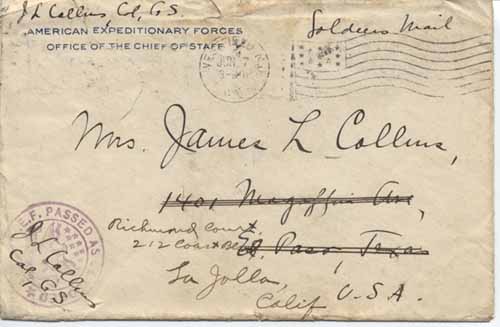 J L Collins, Col, G.S.
AMERICAN EXPEDITIONARY FORCES
OFFICE OF THE CHIEF OF STAFF
Soldiers Mail
JUN 7
Mrs. James L Collins,
1401 Magoffin Av,
Richmond Court
212 Coast Blvd
El Paso, Texas
La Jolla,
Calif U.S.A.
A.E.F. PASSED AS
J L Collins
Col, G.S.